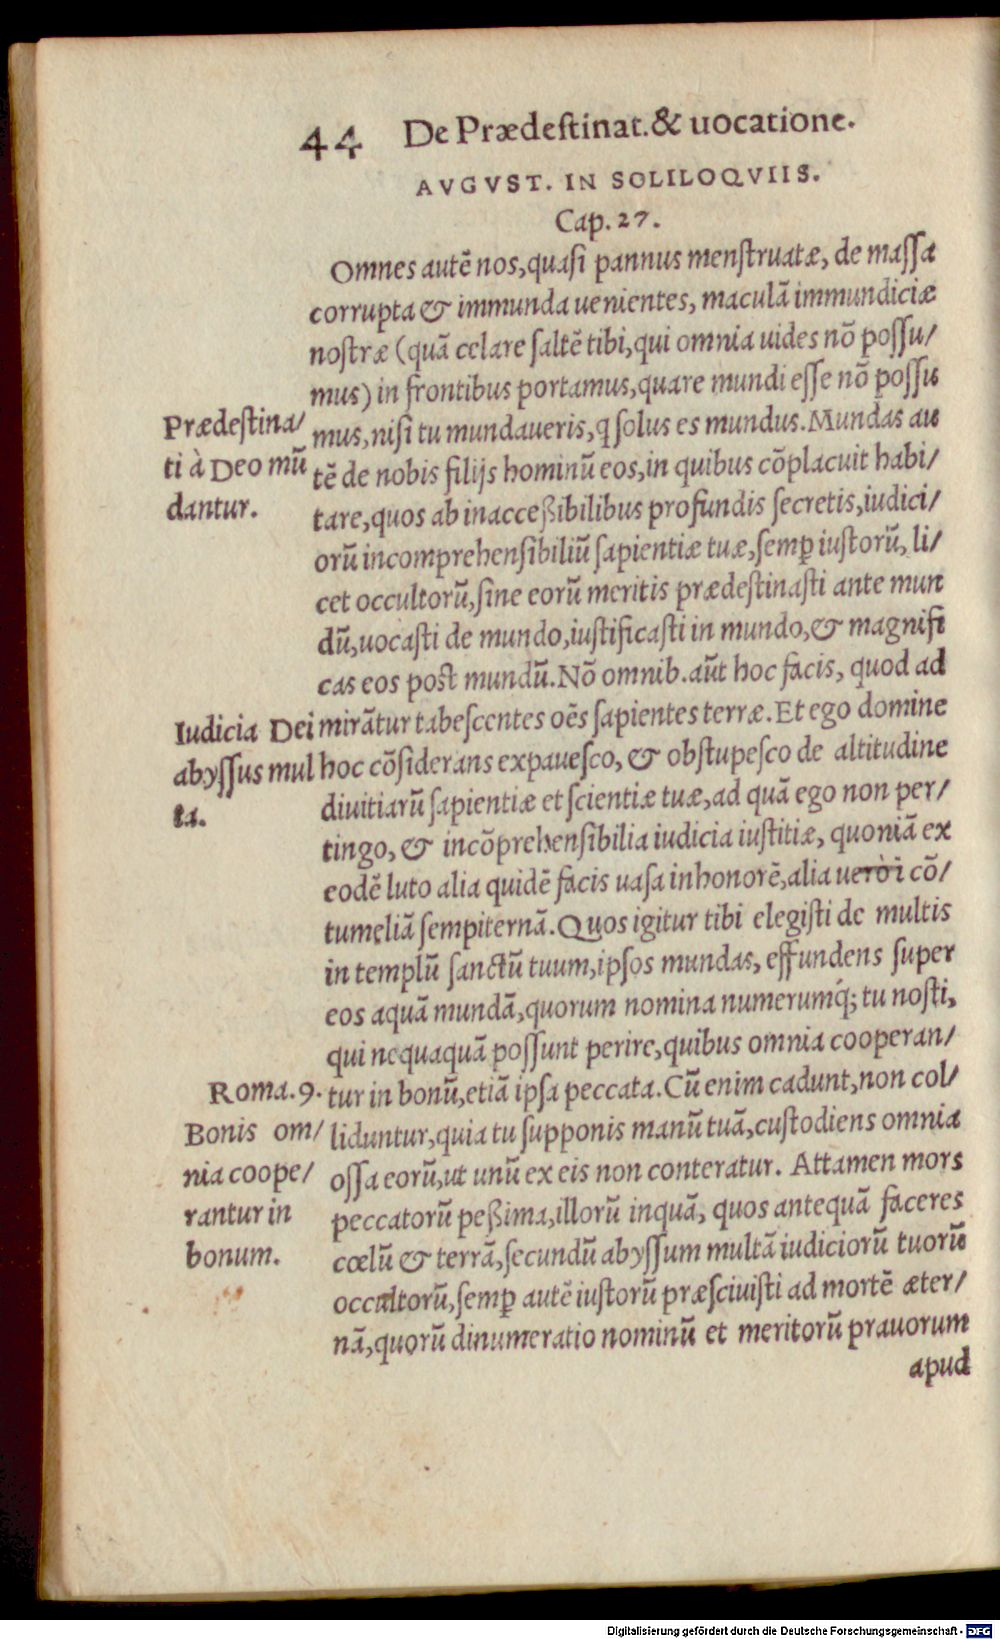 44 De Prædeſtinat. & uocatione.
AVGVST. IN SOLILOQVIIS.
Cap. 27.
Omnes autē nos, quaſi pannus menſtruatæ, de maſſa
corrupta & immunda uenientes, maculā immundiciæ
noſtræ (quā celare ſaltē tibi, qui omnia uides nō poſſu/
mus) in frontibus portamus, quare mundi eſſe nō poſſu
mus, niſi tu mundaueris, q ſolus es mundus. Mundas au
tē de nobis filijs hominū eos, in quibus cōplacuit habi/
tare, quos ab inacceßibilibus profundis ſecretis, iudici/
orū incomprehenſibiliū ſapientiæ tuæ, ſemꝑ iuſtorū, li/
cet occultorū, ſine eorū meritis prædeſtinaſti ante mun
dū, uocaſti de mundo, iuſtificaſti in mundo, & magnifi
cas eos poſt mundū. Nō omnib. aūt hoc facis, quod ad
mirātur tabeſcentes oēs ſapientes terræ. Et ego domine
hoc cōſiderans expaueſco, & obſtupeſco de altitudine
diuitiarū ſapientiæ et ſcientiæ tuæ, ad quā ego non per/
tingo, & incōprehenſibilia iudicia iuſtitiæ, quoniā ex
eodē luto alia quidē facis uaſa in honorē, alia uerò i cō/
tumeliā ſempiternā. Quos igitur tibi elegiſti de multis
in templū ſanctū tuum, ipſos mundas, effundens ſuper
eos aquā mundā, quorum nomina numerumq́; tu noſti,
qui nequaquā poſſunt perire, quibus omnia cooperan/
tur in bonū, etiā ipſa peccata. Cū enim cadunt, non col/
liduntur, quia tu ſupponis manū tuā, cuſtodiens omnia
oſſa eorū, ut unū ex eis non conteratur. Attamen mors
peccatorū peßima, illorū inquā, quos antequā faceres
cœlū & terrā, ſecundū abyſſum multā iudiciorū tuorū
occultorū, ſemꝑ autē iuſtorū præſciuiſti ad mortē æter/
nā, quorū dinumeratio nominū et meritorū prauorum
apud
Prædeſtina/
ti à Deo mū
dantur.
Iudicia Dei
abyſſus mul
ta.
Roma. 9.
Bonis om/
nia coope/
rantur in
bonum.
Digitalisierung gefördert durch die Deutsche Forschungsgemeinschaft - DFG